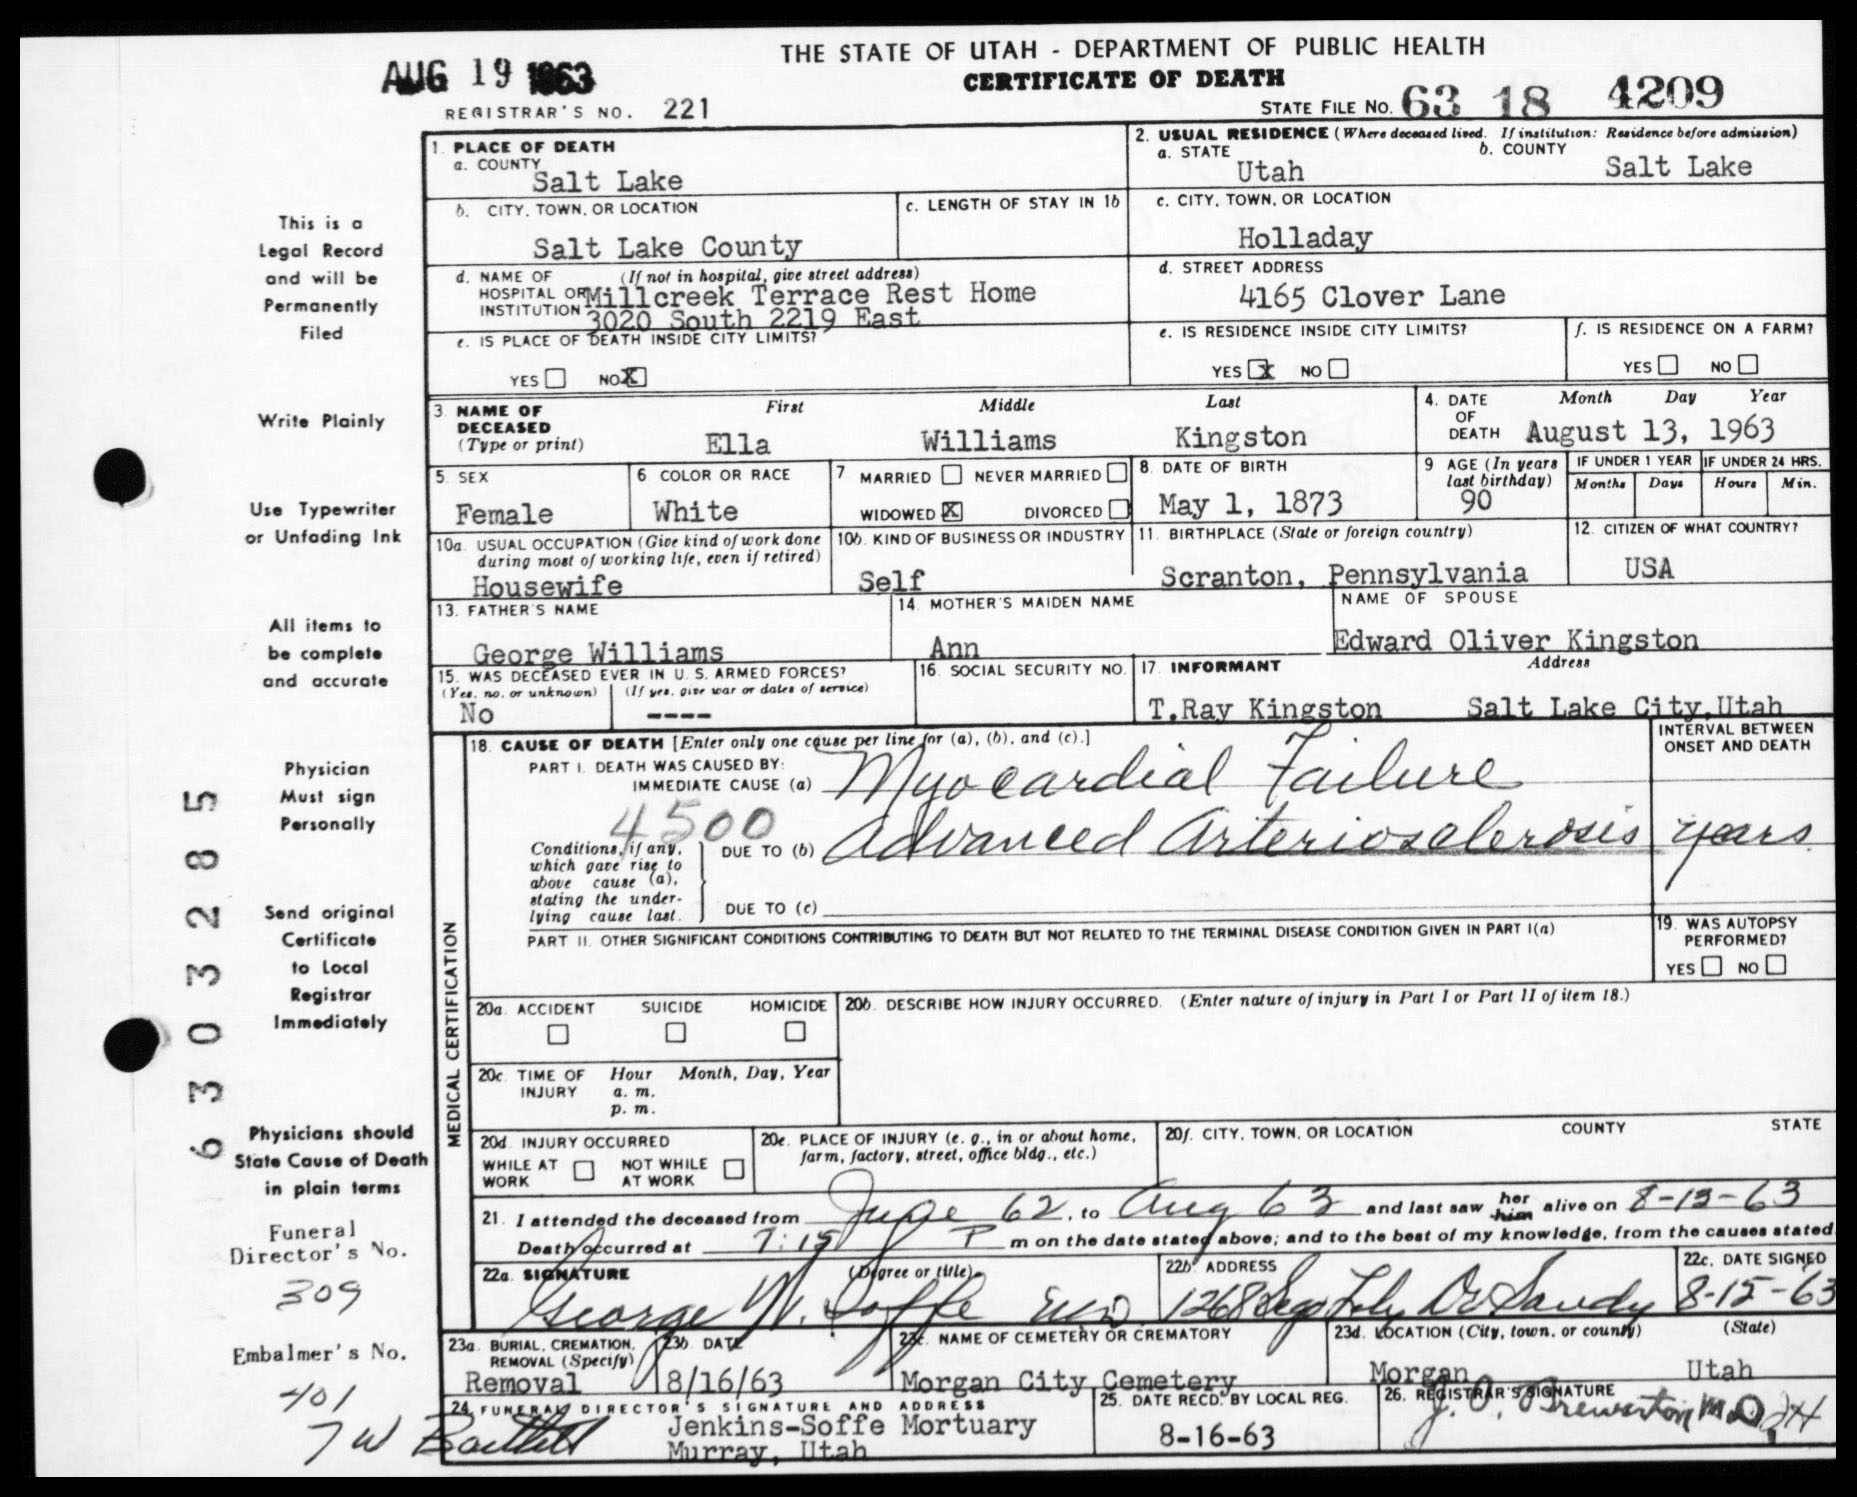 THE STATE OF UTAH - DEPARTMENT OF PUBLIC HEALTH
AUG 19 1963
CERTIFICATE OF DEATH
REGISTRAR'S NO. 221
STATE FILE NO. 63 18 4209
This is a
Legal Record
and will be
Permanently
Filed
Write Plainly
Use Typewriter
or Unfading Ink
All items to
be complete
and accurate
Physician
Must sign
Personally
Send original
Certificate
to Local
Registrar
Immediately
Physicians should
State Cause of Death
in plain terms
Funeral
Director's No.
309
Embalmer's No.
401
6303285
1. PLACE OF DEATH
a. COUNTY
Salt Lake
2. USUAL RESIDENCE (Where deceased lived. If institution: Residence before admission)
a. STATE b. COUNTY
Utah Salt Lake
b. CITY, TOWN, OR LOCATION
Salt Lake County
c. LENGTH OF STAY IN 1b
c. CITY, TOWN, OR LOCATION
Holladay
d. NAME OF (If not in hospital, give street address)
HOSPITAL OR Millcreek Terrace Rest Home
INSTITUTION 3020 South 2219 East
d. STREET ADDRESS
4165 Clover Lane
e. IS PLACE OF DEATH INSIDE CITY LIMITS?
YES NO X
e. IS RESIDENCE INSIDE CITY LIMITS?
YES X NO
f. IS RESIDENCE ON A FARM?
YES NO
3. NAME OF DECEASED First Middle Last
(Type or print) Ella Williams Kingston
4. DATE OF DEATH Month Day Year
August 13, 1963
5. SEX
Female
6 COLOR OR RACE
White
7 MARRIED NEVER MARRIED
WIDOWED X DIVORCED
8. DATE OF BIRTH
May 1, 1873
9 AGE (In years last birthday)
90
IF UNDER 1 YEAR
Months Days
IF UNDER 24 HRS.
Hours Min.
10a. USUAL OCCUPATION (Give kind of work done
during most of working life, even if retired)
Housewife
10b. KIND OF BUSINESS OR INDUSTRY
Self
11. BIRTHPLACE (State or foreign country)
Scranton, Pennsylvania
12. CITIZEN OF WHAT COUNTRY?
USA
13. FATHER'S NAME
George Williams
14. MOTHER'S MAIDEN NAME
Ann
NAME OF SPOUSE
Edward Oliver Kingston
15. WAS DECEASED EVER IN U. S. ARMED FORCES?
(Yes, no, or unknown) (If yes, give war or dates of service)
No ----
16. SOCIAL SECURITY NO.
17. INFORMANT Address
T.Ray Kingston Salt Lake City,Utah
MEDICAL CERTIFICATION
18. CAUSE OF DEATH [Enter only one cause per line for (a), (b), and (c).]
INTERVAL BETWEEN
ONSET AND DEATH
PART I. DEATH WAS CAUSED BY:
IMMEDIATE CAUSE (a) Myocardial Failure
4500
Conditions, if any,
which gave rise to
above cause (a),
stating the under-
lying cause last.
DUE TO (b) Advanced Arteriosclerosis years
DUE TO (c)
PART II. OTHER SIGNIFICANT CONDITIONS CONTRIBUTING TO DEATH BUT NOT RELATED TO THE TERMINAL DISEASE CONDITION GIVEN IN PART I(a)
19. WAS AUTOPSY
PERFORMED?
YES NO
20a. ACCIDENT SUICIDE HOMICIDE
20b. DESCRIBE HOW INJURY OCCURRED. (Enter nature of injury in Part I or Part II of item 18.)
20c. TIME OF INJURY Hour Month, Day, Year
a. m.
p. m.
20d. INJURY OCCURRED
WHILE AT WORK NOT WHILE AT WORK
20e. PLACE OF INJURY (e. g., in or about home,
farm, factory, street, office bldg., etc.)
20f. CITY, TOWN, OR LOCATION COUNTY STATE
21. I attended the deceased from June 62, to Aug 63 and last saw her him alive on 8-13-63
Death occurred at 7:15 P m on the date stated above; and to the best of my knowledge, from the causes stated.
22a. SIGNATURE (Degree or title)
George W. Soffe MD
22b. ADDRESS
1268 Sego Lily Dr Sandy
22c. DATE SIGNED
8-15-63
23a. BURIAL, CREMATION,
REMOVAL (Specify)
Removal
23b. DATE
8/16/63
23c. NAME OF CEMETERY OR CREMATORY
Morgan City Cemetery
23d. LOCATION (City, town, or county) (State)
Morgan Utah
24. FUNERAL DIRECTOR'S SIGNATURE AND ADDRESS
Jenkins-Soffe Mortuary
Murray, Utah
25. DATE RECD. BY LOCAL REG.
8-16-63
26. REGISTRAR'S SIGNATURE